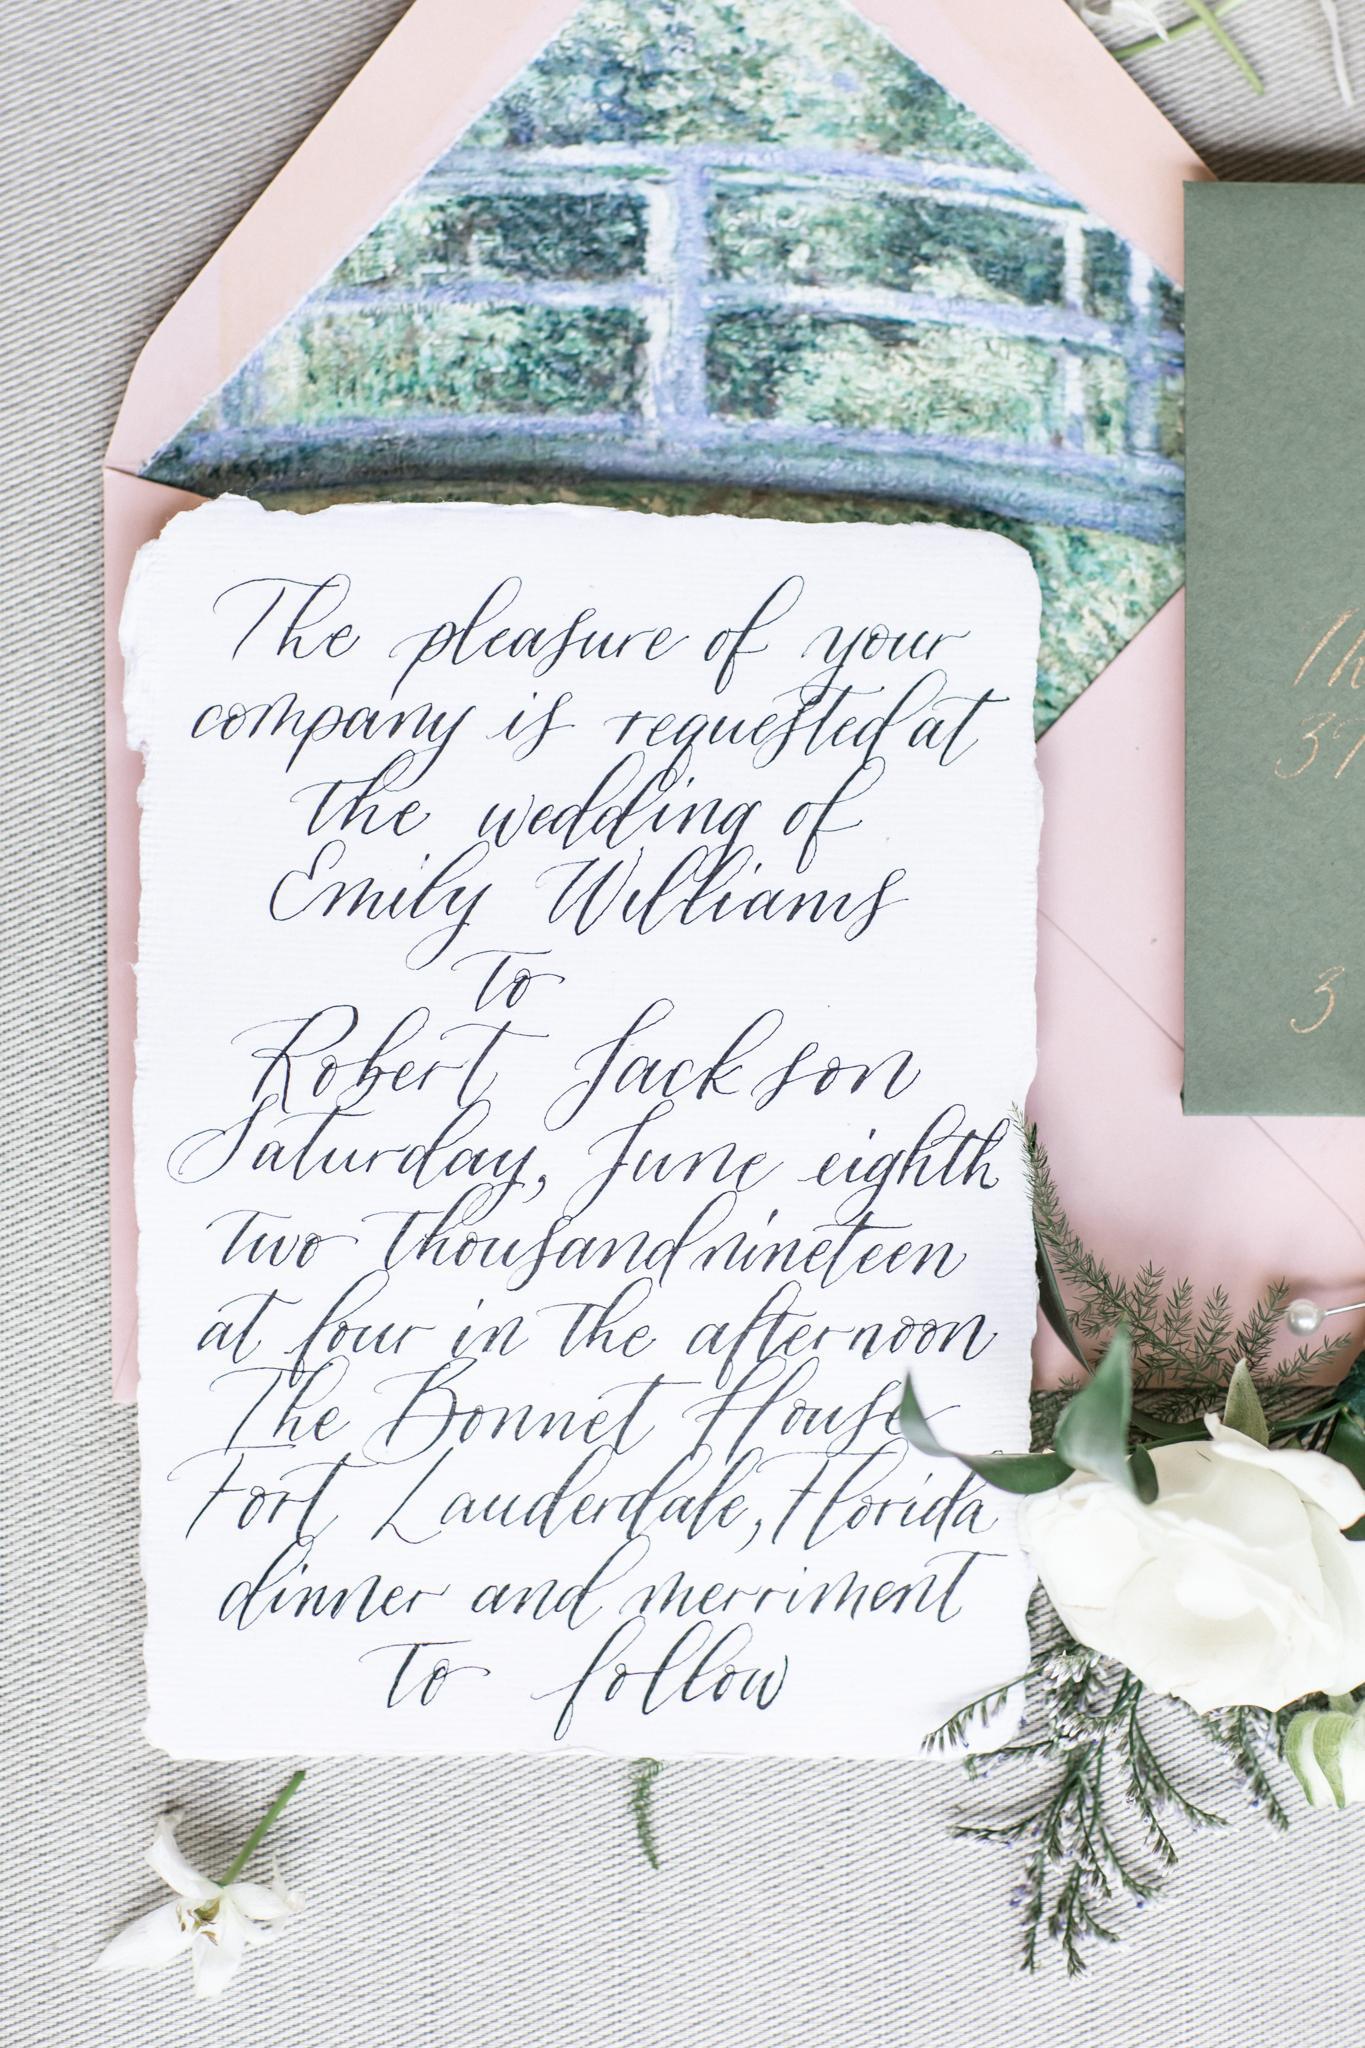 The pleasure of your
company is requested at
the wedding of
Emily Williams
to
Robert Jackson
Saturday, June eighth
two thousand nineteen
at four in the afternoon
The Bonnet House
Fort Lauderdale, Florida
dinner and merriment
to follow
Th
37
3